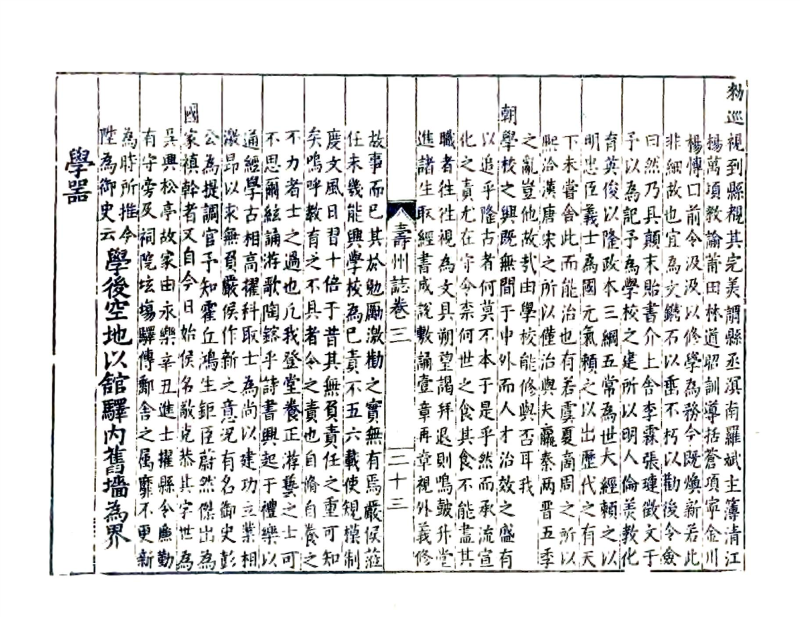 勑巡視到縣覩其完美謂縣丞滇南羅斌主簿清江
楊萬頃教諭莆田林道昭訓導括蒼項寧金川
楊傳曰前令汲汲以修學為務今既煥新若此
非細故也宜為文鐫石以垂不朽以勸後令僉
曰然乃具顛末貽書介上舍李霖張璉徵文于
予以為記予為學校之建所以明人倫美教化
育英俊以隆政本三綱五常為世大經賴之以
明忠臣義士為國元氣賴之以出歷代之有天
下未嘗舍此而能治也有若虞夏商周之所以
熙洽漢唐宋之所以僅治與夫嬴秦兩晋五季
之亂豈他故哉由學校能修與否耳我
朝學校之興既無間于中外而人才治效之盛有
以追乎隆古者何莫不本于是乎然而承流宣
化之責尤在守令柰何世之食其食不能盡其
職者往往視為文具朔望謁拜退則鳴皷升堂
進諸生取經書成說數誦壹章再章視外義修
壽州誌卷三 二十三
故事而已其於勉勵激勸之實無有焉嚴侯蒞
任未幾能興學校為已責不五六載使規模制
度文風日習十倍于昔其無負責任之重可知
矣嗚呼教育之不具者令之責也自脩自養之
不力者士之過也凡我登堂養正游藝之士可
不思爾絃誦游歌陶鎔乎詩書興起于禮樂以
通經學古相高擢科取士為尚以建功立業相
激昂以求無負嚴侯作新之意况有名御史彭
公為提調官予知霍丘鴻生鉅臣蔚然傑出為
國家禎幹者又自今日始侯名敬克恭其字世為
吳興松亭故家由永樂辛丑進士擢縣令廉勤
有守旁及祠院坛塲驛傳郵舍之属靡不更新
為時所推今
陞為御史云 學後空地以館驛內舊墻為界
學器